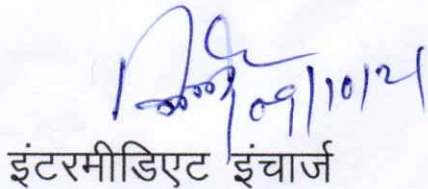 09/10/21
इंटरमीडिएट इंचार्ज